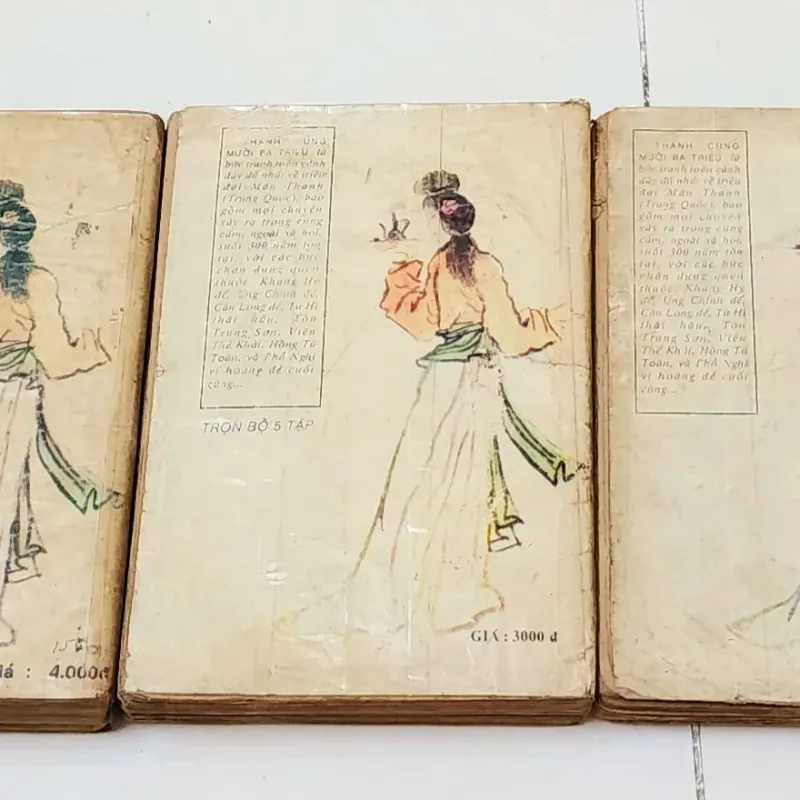 THANH CUNG
MƯỜI BA TRIỀU, là
bức tranh toàn cảnh
đầy đủ nhất về triều
đại Mãn Thanh
(Trung Quốc), bao
gồm mọi chuyện
xảy ra trong cung
cấm, ngoài xã hội,
suốt 300 năm tồn
tại, với các bức
chân dung quen
thuộc: Khang Hy
đế, Ung Chính đế,
Càn Long đế, Từ Hi
thái hậu, Tôn
Trung Sơn, Viên
Thế Khải, Hồng Tú
Toàn, và Phổ Nghi
vị hoàng đế cuối
cùng...
TRỌN BỘ 5 TẬP
GIÁ : 3000 đ
iá : 4.000đ
THANH CUNG
MƯỜI BA TRIỀU, là
bức tranh toàn cảnh
đầy đủ nhất về triều
đại Mãn Thanh
(Trung Quốc), bao
gồm mọi chuyện
xảy ra trong cung
cấm, ngoài xã hội,
suốt 300 năm tồn
tại, với các bức
chân dung quen
thuộc: Khang Hy
đế, Ung Chính đế,
Càn Long đế, Từ Hi
thái hậu, Tôn
Trung Sơn, Viên
Thế Khải, Hồng Tú
Toàn, và Phổ Nghi
vị hoàng đế cuối
cùng...